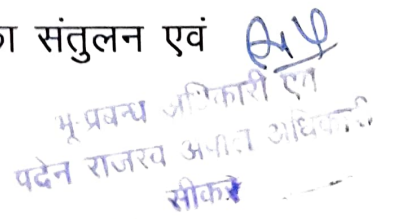 का संतुलन एवं
भू-प्रबन्ध अधिकारी एवं
पदेन राजस्व अपील अधिकारी
सीकर